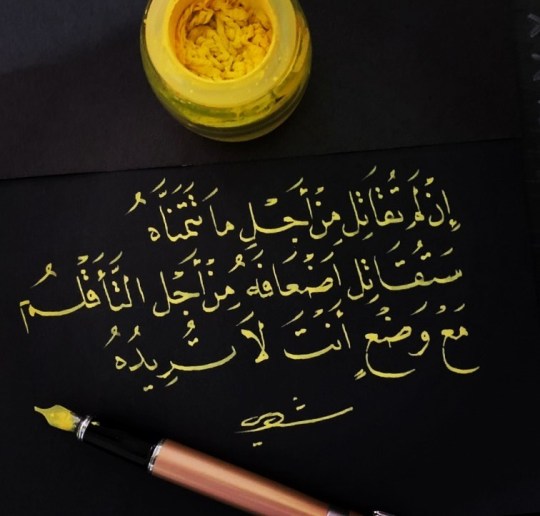 إِنْ لَمْ تُقَاتِل مِنْ أَجْلِ مَا تَتَمَنَّاهُ
سَتُقَاتِل أَضْعَافَهُ مِنْ أَجْل التَّأَقْلُمِ
مَعْ وَضْعٍ أَنْتَ لَا تُرِيدُهُ